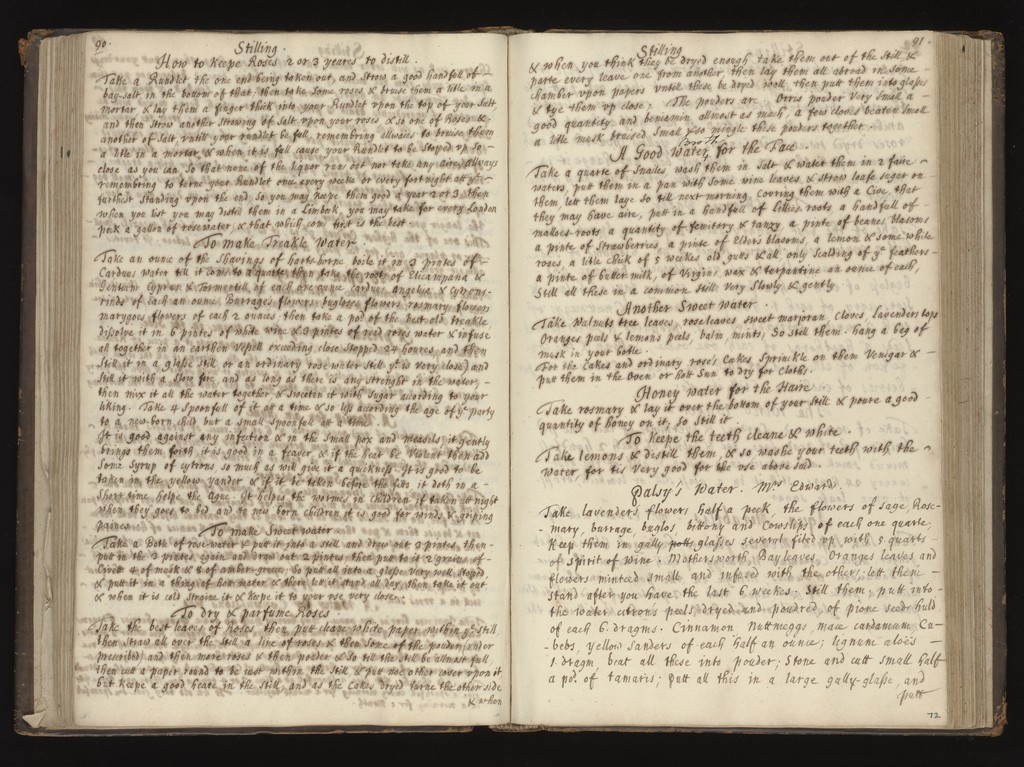 90.
Stilling.
How to Keepe Roses 2 or 3 yeares to distill.
Take a Rundlet, the one end being taken out, and Strow a good handfull of
bay-salt in the bottom of that, then take Some roses & bruse them a litle in a
morter & lay them a finger thick into your Rundlet vpon the top of your Salt
and then Strow another Strowing of Salt vpon your roses & so one of Roses &
another of Salt, vntill your rundlet be full, remembring allwaies to bruise them
a litle in a morter, & when it is full cause your Rundlet to be Stoped vp So
close as you can So that none of the liquor run out nor take any aire, allways
remembring to turne your Rundlet once every weeke or every fortnight all yt
furthest Standing vpon the end, So you may keepe them good a year 2 or 3, then
when you list you may distill them in a Limbeck, you may take for every London
peck a gallon of rosewater, & that which com first is the best
To make Treakle Water
Take an ounce of the Shavings of harts-horne boile it in 3 pintes of
Carduus water till it come to a quarte, then take the roots of Elicampana &
Gentium Cyprus & Tormentill of each one ounce Carduus angelica & Cytrons
rindes of each an ounce, Burrages flowers, buglose flowers, rosmary flowers
marygold flowers of each 2 ounces, then take a pod of the best old treakle
dissolve it in 6 pintes of white wine & 3 pintes of reed roses water & infuse
all together in an earthen Vessell exceeding close stopped 24 houres, and then
Still it in a glasse Still or an ordinary rose water Still yt is very close, and
Still it with a Slow fire, and as long as there is any strenght in the water,
then mix it all the water together & Sweeten it with Sugar acording to your
liking. Take 4 Spoonfull of it at a time & so less acording the age of ye party
to a new-born child but a small Spoonfull att a time.
It is good against any infection & in the Small pox and measels, it gently
brings them forth it is good in a feaver & if the heat be Violent then add
Some Syrup of cytrons so much as will give it a quickness. It is good to be
taken in the yellow Yander & if it be taken before the fitt it doth in a
Short time helpe the Ague. It helpes the wormes in children if taken att night
when they goes to bed, and to new born children it is good for winds & griping
paines.
To make Sweet water
Take a Botle of rose-water & put it into a still and draw out 3 pintes, then
put in the 3 pintes again and draw out 2 pintes, then put to it 2 graines of
Civett 4 of musk & 8 of amber-greece, So put all into a glasse Very well Stoped,
& putt it in a thing of hott water & there let it stand all day, then take it out
& when it is cold Straine it & keepe it to your vse very close.
To dry & parfume Roses
Take the best leaves of Roses, then putt cleane white paper within ye Still,
then Straw all over the Still a line of roses & then Some of the pouder (vnder
prescribed) and then more roses & then pouder & So till the Still be allmost full
then cutt a paper round to be iust within the Still, & put noe other cover vpon it
but keepe a good heate in the Still, and as the Cakes dryed turne the other side
& when
91.
Stilling
& when you think they be dryed enough take them out of the Still &
parte every leave one from another, then lay them all abroad in Some
chamber vpon papers vntill these be dryed well, then putt them into glasses
& tye them vp close. The pouders ar: Orris pouder Very Small a
good quantity and beniamin allmost as much, a few cloves beaten Small
a litle musk bruised Small So mingle these pouders together
A Good Water, for the Face.
Take a quarte of Snailes, wash them in Salt & water them in 2 faire
waters, put them in a pan with Some vine leaves & strow loafe suger on
them, lett them laye So till next morning, Covring them with a Cive, that
they may have aire, putt in a handfull of Lillies roots a handfull of
malloes-roots a quantity of femitery & tanzy a pinte of beanes blasoms
a pinte of Strawberries, a pinte of Elders blasoms, a lemon & some white
roses, a litle chick of 5 weekes old, gutts & all, only Scalding of ye feathers
a pinte of butter milk, of Virgins wax & terpantine an ounce of each,
Still all these in a common still very Slowly & gently.
Another Sweet Water.
Take Walnuts tree leaves, roseleaves sweet marjoran, cloves, Lavenders tops
Oranges peels & lemons peels, balm, mints, So still them. hang a beg of
musk in your botle.
For the Cakes and ordinary roses Cakes, Sprinckle on them Venigar &
putt them in the Oven or hott Sun to dry for Cloths.
Honey water for the Haire
Take rosmary & lay it over the bottom of your Still & poure a good
quantity of honey on it, So Still it
To Keepe the teeth cleane & white.
Take lemons & distill them, & so washe your teeth with the
water, for tis Very good for the vse above said.
Palsy's Water. Mrs Edward.
Take lavenders flowers half a peck, the flowers of Sage, Rose-
mary, burrage buglos bittony and Cowslips of each one quarte,
Keep them in gally potts glasses Severel filed vp with 5 quarts
of Spirit of wine. Mothersworth, Bayleaves, Oranges leaves and
flowers mintced small and infused with the others, lett them
Stand after you have the last 6 weekes. Still them, putt into
the water citrons peels dryed and poudred, of pione seeds huld
of each 6. dragms. Cinnamon Nuttmeggs mace cardamum, Cu-
bebs, yellow Sanders of each half an ounce; lignum aloës
1. dragm, beat all these into pouder; Stone and cutt Small half
a po. of tamaris; Putt all this in a large gally-glasse, and
putt
72